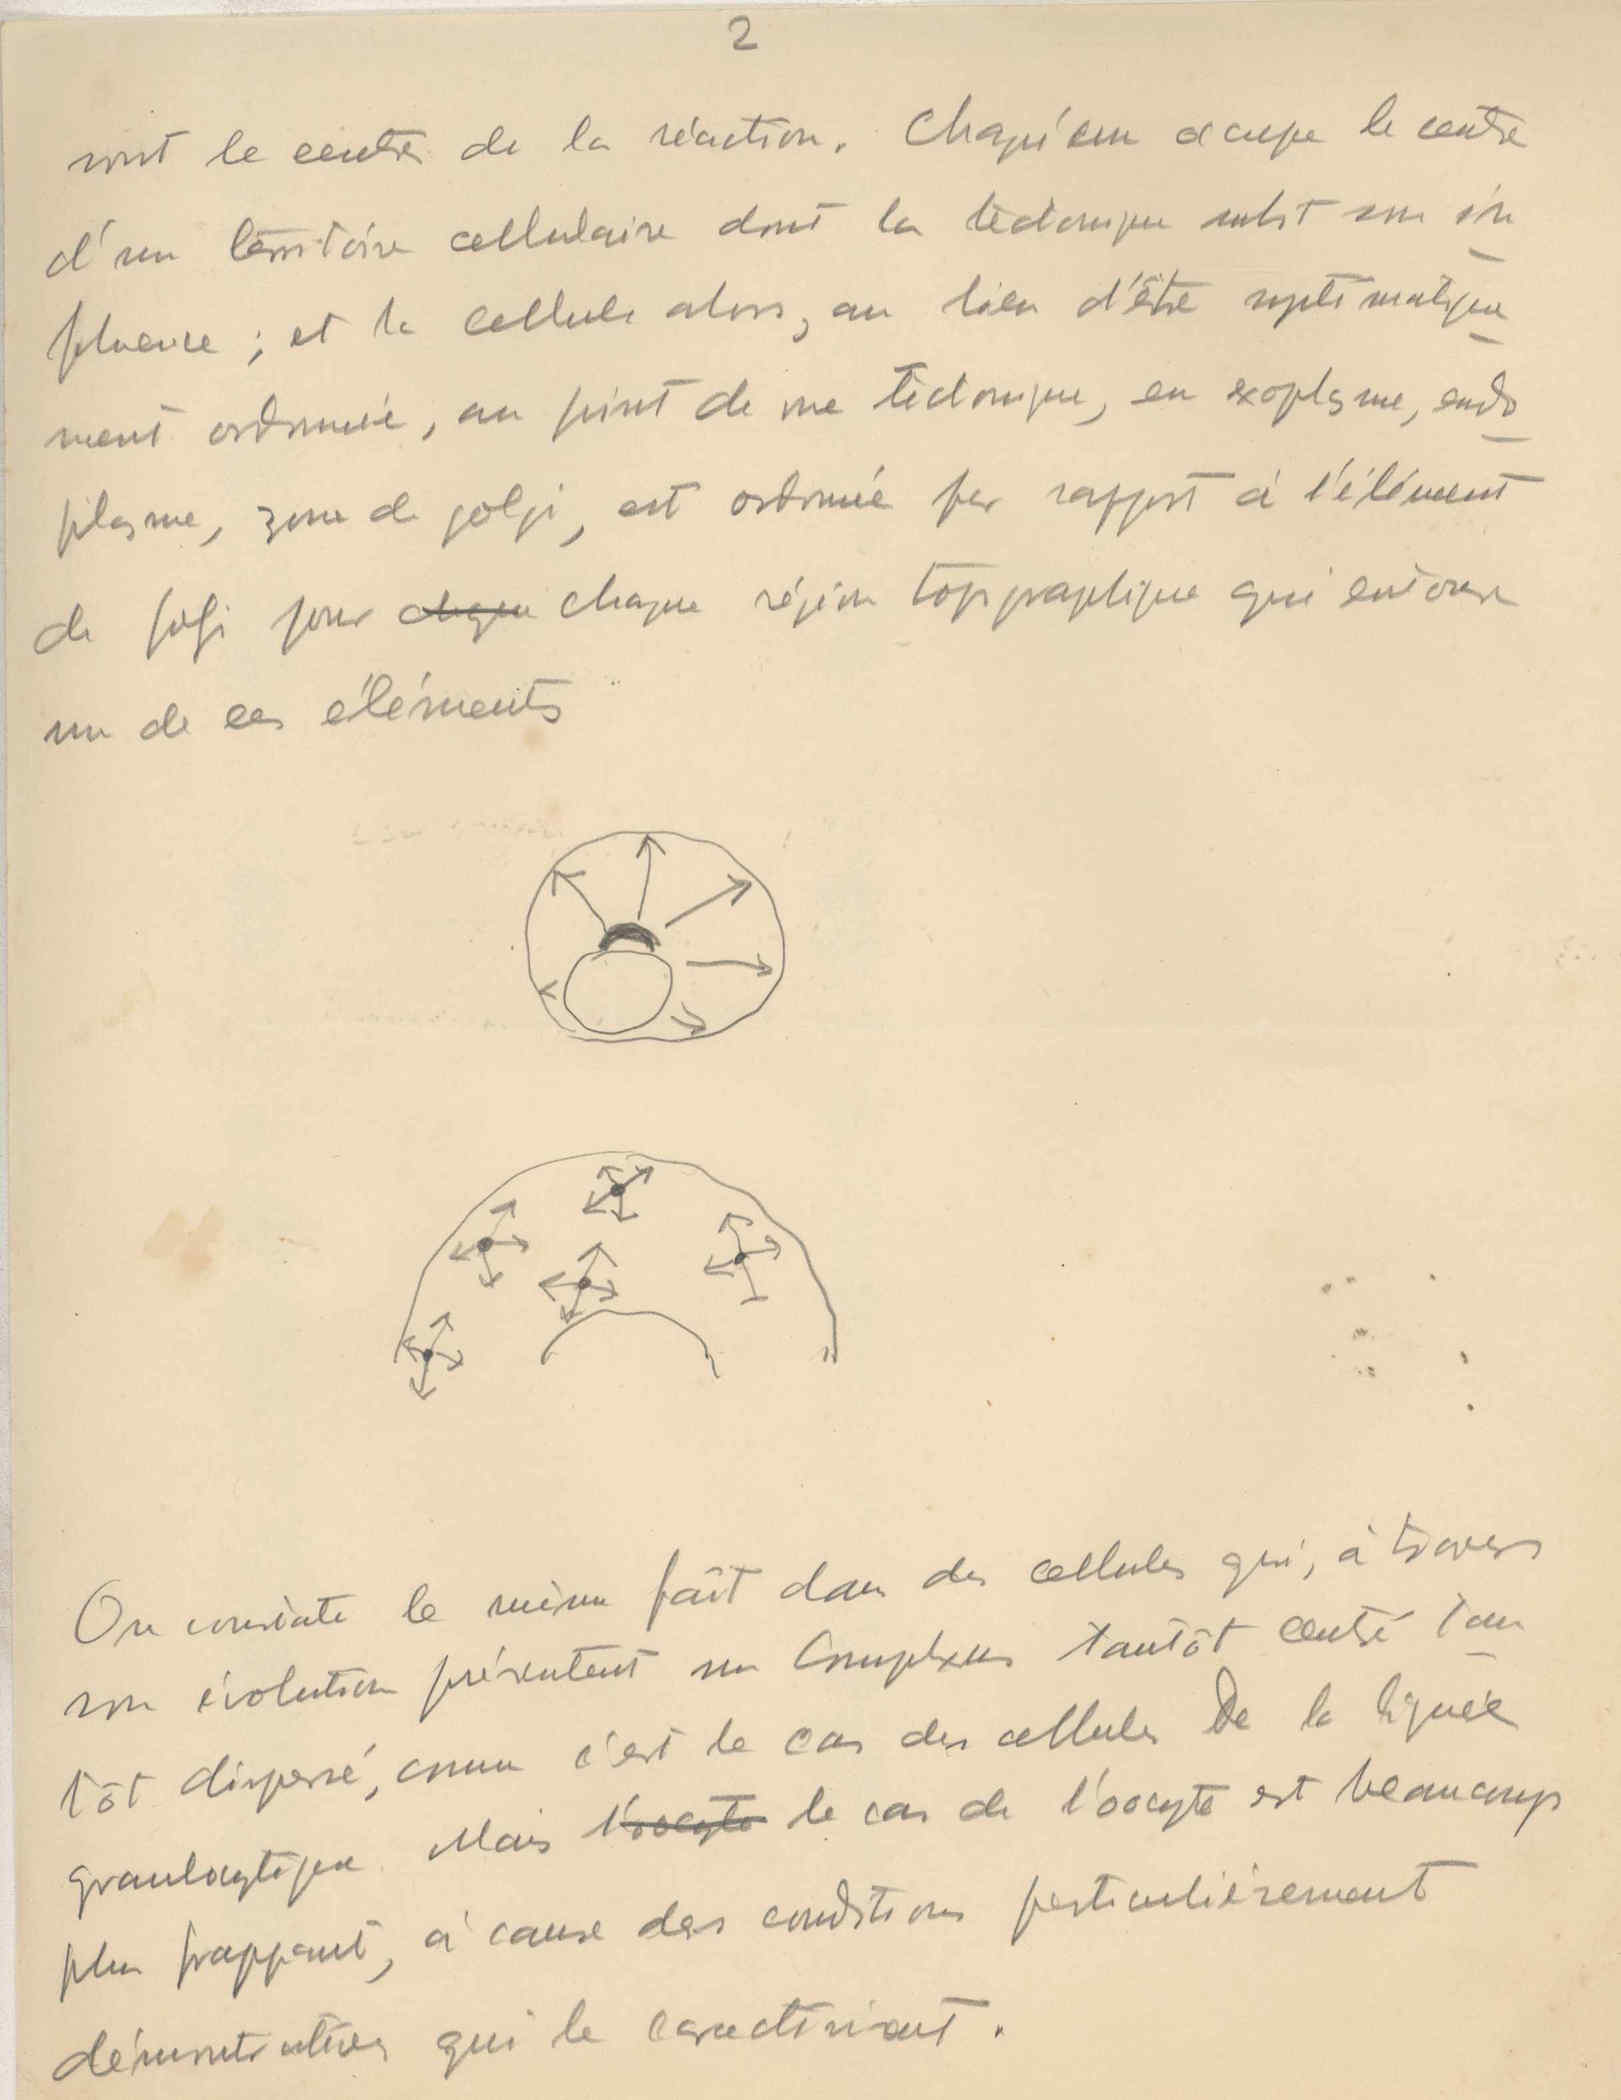 2
sont le centre de la réaction. Chaqu'un occupe le centre
d'un territoire cellulaire dont la tectonique subit son in
fluence ; et la cellule alors, au lieu d'être systématique
ment ordonnée, au point de vue tectonique, en exoplasme, endo
plasme, zone de golgi, est ordonnée par rapport à l'élément
de golgi pour chaque chaque région topographique qui entoure
un de ces éléments
On constate le même fait dans des cellules qui, à travers
son évolution présentent un Complexus tantôt centré tan
tôt dispersé, comme c'est le cas des cellules De la lignée
granulocytique. Mais l'oocyte le cas de l'oocyte est beaucoup
plus frappant, à cause des conditions particulièrement
démonstratives qui le caractérisent.